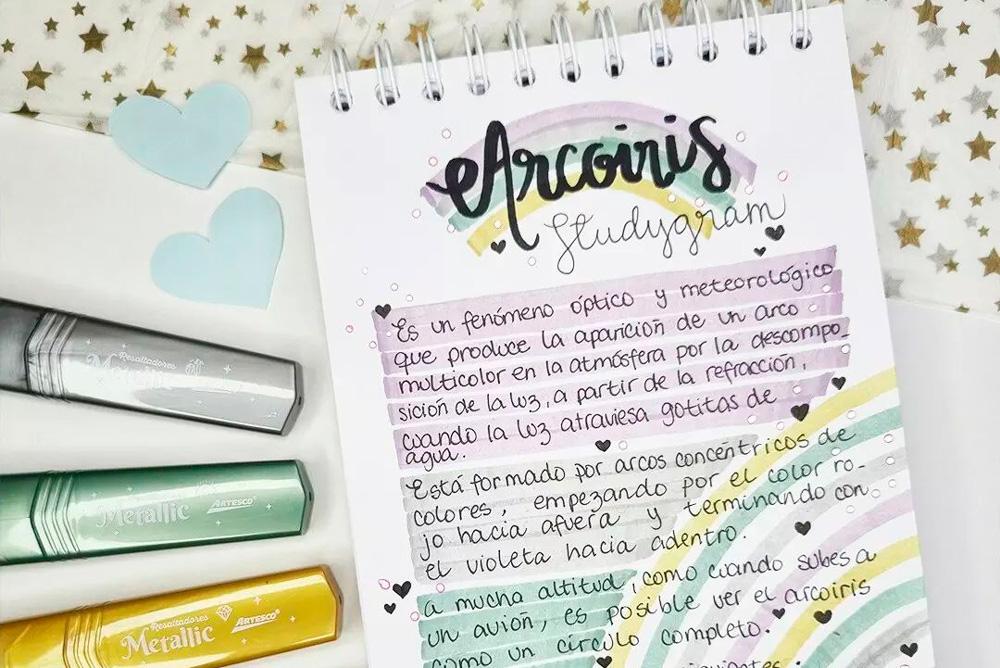 Arcoiris
Studygram
Es un fenómeno óptico y meteorológico
que produce la aparición de un arco
multicolor en la atmósfera por la descompo-
sición de la luz, a partir de la refracción,
cuando la luz atraviesa gotitas de
agua.
Está formado por arcos concéntricos de
colores, empezando por el color ro-
jo hacia afuera y terminando con
el violeta hacia adentro.
a mucha altitud, como cuando subes a
un avión, es posible ver el arcoiris
como un círculo completo.
Resaltadores
Metallic
Metallic ARTESCO
Resaltadores
Metallic ARTESCO